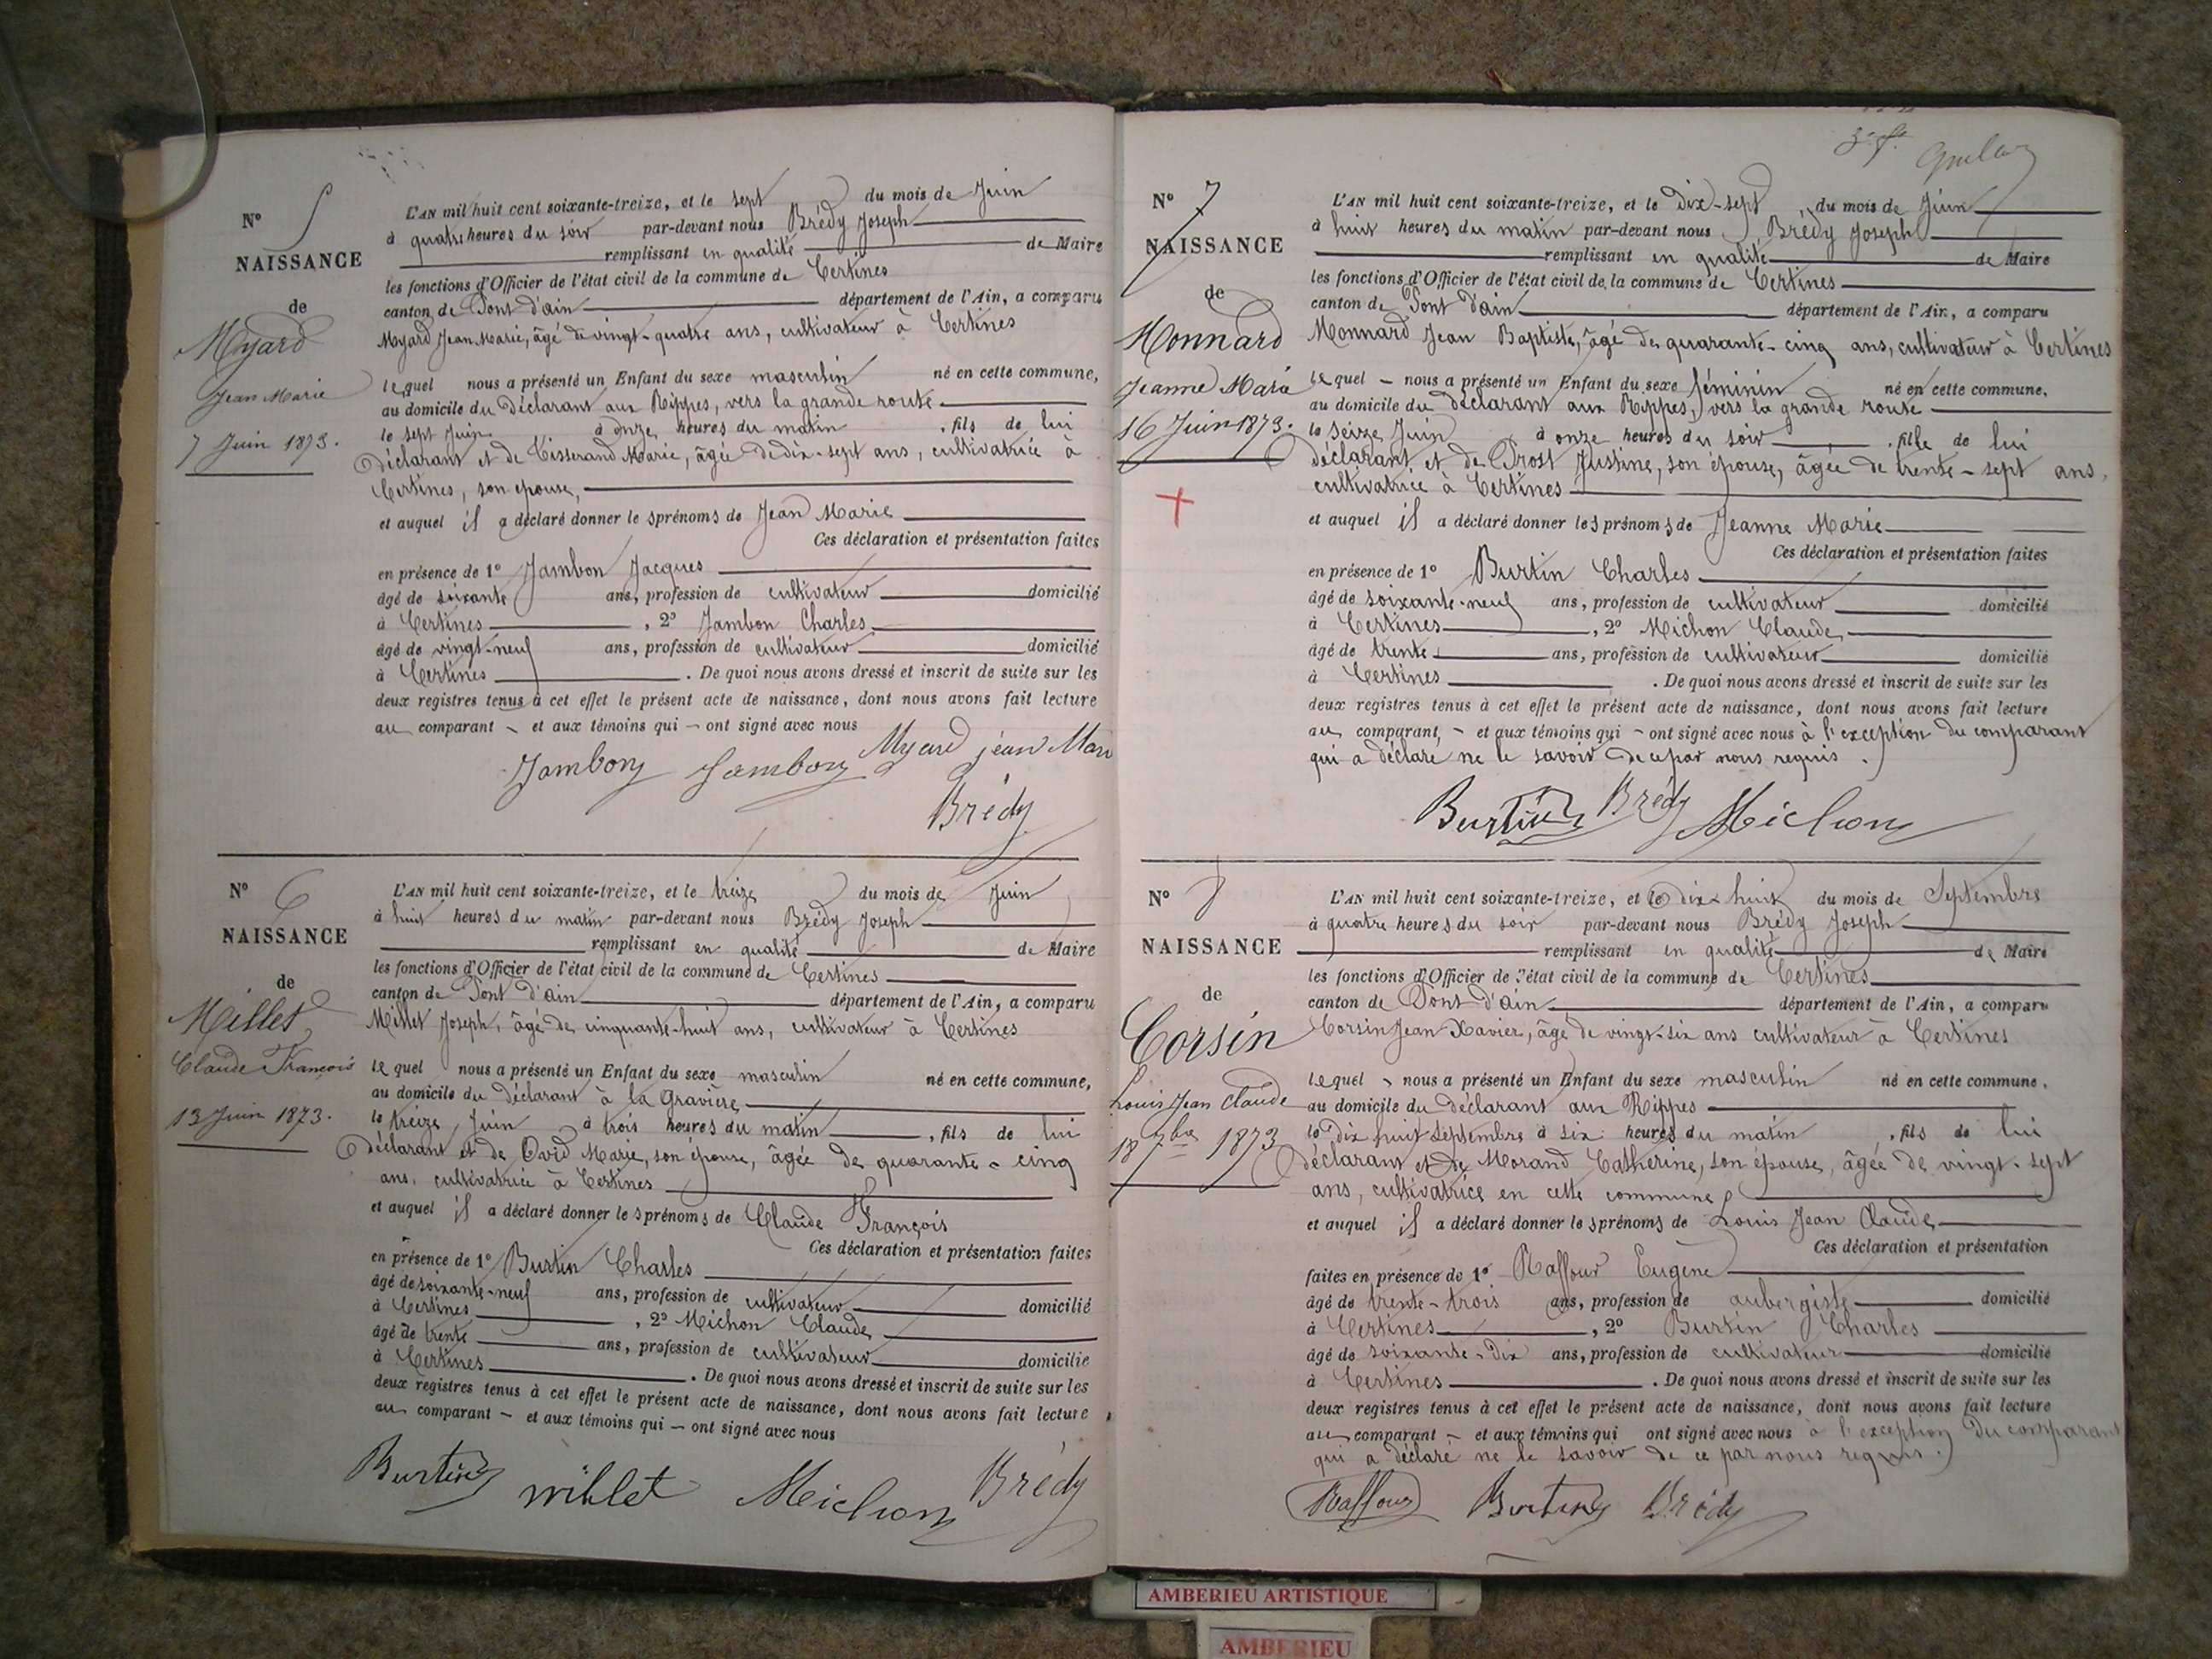 N° 5
NAISSANCE
de
Myard
Jean Marie
7 Juin 1873.
L'AN mil huit cent soixante-treize, et le sept du mois de Juin
à quatre heures du soir par-devant nous Brédy Joseph
remplissant en qualité de Maire
les fonctions d'Officier de l'état civil de la commune de Certines
canton de Pont d'ain département de l'Ain, a comparu
Myard Jean Marie, âgé de vingt-quatre ans, cultivateur à Certines
lequel nous a présenté un Enfant du sexe masculin né en cette commune,
au domicile du Déclarant aux Rippes, vers la grande route
le sept Juin à onze heures du matin, fils de lui
Déclarant et de Tisserand Marie, âgée de dix-sept ans, cultivatrice à
Certines, son épouse,
et auquel il a déclaré donner les prénoms de Jean Marie
Ces déclaration et présentation faites
en présence de 1° Jambon Jacques
âgé de soixante ans, profession de cultivateur domicilié
à Certines, 2° Jambon Charles,
âgé de vingt-neuf ans, profession de cultivateur domicilié
à Certines. De quoi nous avons dressé et inscrit de suite sur les
deux registres tenus à cet effet le présent acte de naissance, dont nous avons fait lecture
au comparant - et aux témoins qui - ont signé avec nous
Jambon Jambon Myard jean Mari
Brédy
N° 6
NAISSANCE
de
Millet
Claude François
13 Juin 1873.
L'AN mil huit cent soixante-treize, et le treize du mois de Juin
à huit heures du matin par-devant nous Brédy Joseph
remplissant en qualité de Maire
les fonctions d'Officier de l'état civil de la commune de Certines
canton de Pont d'ain département de l'Ain, a comparu
Millet Joseph, âgé de cinquante-huit ans, cultivateur à Certines
lequel nous a présenté un Enfant du sexe masculin né en cette commune,
au domicile du Déclarant à la Gravière,
le treize Juin à trois heures du matin, fils de lui
Déclarant et de Ovid Marie, son épouse, âgée de quarante-cinq
ans, cultivatrice à Certines
et auquel il a déclaré donner les prénoms de Claude François
Ces déclaration et présentation faites
en présence de 1° Burtin Charles
âgé de soixante-neuf ans, profession de cultivateur domicilié
à Certines, 2° Michon Claude
âgé de trente ans, profession de cultivateur domicilié
à Certines. De quoi nous avons dressé et inscrit de suite sur les
deux registres tenus à cet effet le présent acte de naissance, dont nous avons fait lecture
au comparant - et aux témoins qui - ont signé avec nous
Burtin millet Michon Brédy
3e f.
N° 7
NAISSANCE
de
Monnard
Jeanne Marie
16 Juin 1873.
L'AN mil huit cent soixante-treize, et le Dix-sept du mois de Juin
à huit heures du matin par-devant nous Brédy Joseph
remplissant en qualité de Maire
les fonctions d'Officier de l'état civil de la commune de Certines
canton de Pont d'ain département de l'Ain, a comparu
Monnard Jean Baptiste, âgé de quarante-cinq ans, cultivateur à Certines
lequel - nous a présenté un Enfant du sexe féminin né en cette commune,
au domicile du déclarant aux Rippes, vers la grande route
le seize Juin à onze heures du soir, fille de lui
déclarant et de Prost Justine, son épouse, âgée de trente-sept ans,
cultivatrice à Certines
et auquel il a déclaré donner les prénoms de Jeanne Marie
Ces déclaration et présentation faites
en présence de 1° Burtin Charles
âgé de soixante-neuf ans, profession de cultivateur domicilié
à Certines, 2° Michon Claude
âgé de trente ans, profession de cultivateur domicilié
à Certines. De quoi nous avons dressé et inscrit de suite sur les
deux registres tenus à cet effet le présent acte de naissance, dont nous avons fait lecture
au comparant, - et aux témoins qui - ont signé avec nous à l'exception du comparant
qui a déclaré ne le savoir de ce par nous requis.
Burtin Brédy Michon
N° 8
NAISSANCE
de
Corsin
Louis Jean Claude
18 7bre 1873
L'AN mil huit cent soixante-treize, et le Dix-huit du mois de Septembre
à quatre heures du soir par-devant nous Brédy Joseph
remplissant en qualité de Maire
les fonctions d'Officier de l'état civil de la commune de Certines
canton de Pont d'ain département de l'Ain, a comparu
Corsin Jean Xavier, âgé de vingt-six ans cultivateur à Certines
lequel - nous a présenté un Enfant du sexe masculin né en cette commune,
au domicile du Déclarant aux Rippes
le Dix huit septembre à six heures du matin, fils de lui
déclarant et de Morand Catherine, son épouse, âgée de vingt-sept
ans, cultivatrice en cette commune
et auquel il a déclaré donner les prénoms de Louis Jean Claude
Ces déclaration et présentation
faites en présence de 1° Raffour Eugène
âgé de trente-trois ans, profession de aubergiste domicilié
à Certines, 2° Burtin Charles
âgé de soixante-Dix ans, profession de cultivateur domicilié
à Certines. De quoi nous avons dressé et inscrit de suite sur les
deux registres tenus à cet effet le présent acte de naissance, dont nous avons fait lecture
au comparant - et aux témoins qui ont signé avec nous à l'exception du comparant
qui a déclaré ne le savoir de ce par nous requis.
Raffour Burtin Brédy
AMBERIEU ARTISTIQUE
AMBERIEU